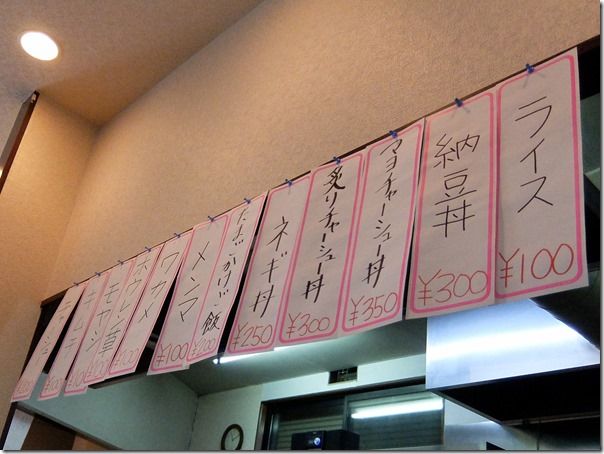 ライス
¥100
納豆丼
¥300
マヨチャーシュー丼
¥350
炙りチャーシュー丼
¥300
ネギ丼
¥250
たまごかけご飯
¥200
メンマ
¥100
ワカメ
ホウレン草
¥100
モヤシ
キムチ